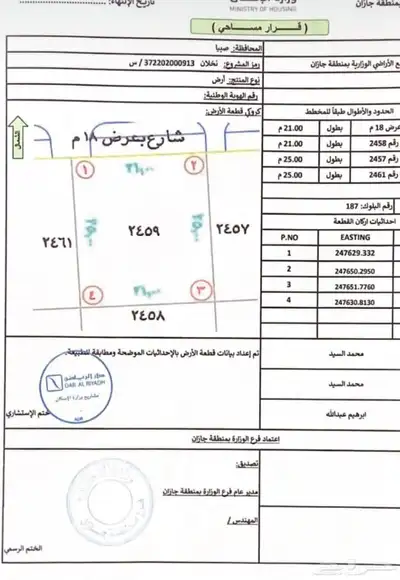 وزارة الإسكان
MINISTRY OF HOUSING
بمنطقة جازان
تاريخ الإنتهاء:
( قـــرار مســـاحي )
المحافظة: صبيا
ع الأراضي الوزارية بمنطقة جازان
رمز المشروع: نخلان 372202000913 / س
نوع المنتج: أرض
رقم الهوية الوطنية:
الحدود والأطوال طبقاً للمخطط
كروكي قطعة الأرض:
عرض 18 م بطول 21.00 م
رقم 2458 بطول 21.00 م
رقم 2457 بطول 25.00 م
رقم 2461 بطول 25.00 م
الشمال
شارع بعرض ١٨ م
١
٢١,٠٠
٢
٢٤٦١
٢٥,٠٠
٢٤٥٩
٢٥,٠٠
٢٤٥٧
٤
٢١,٠٠
٣
٢٤٥٨
رقم البلوك: 187
احداثيات اركان القطعة
P.NO EASTING
1 247629.332
2 247650.2950
3 247651.7760
4 247630.8130
تم إعداد بيانات قطعة الأرض بالإحداثيات الموضحة ومطابقة للطبيعة.
محمد السيد
محمد السيد
ابرهيم عبدالله
DAR AL RIYADH
مشاريع وزارة الإسكان
ختم الإستشاري
اعتماد فرع الوزارة بمنطقة جازان
تصديق:
مدير عام فرع الوزارة بمنطقة جازان
المهندس /
الختم الرسمي